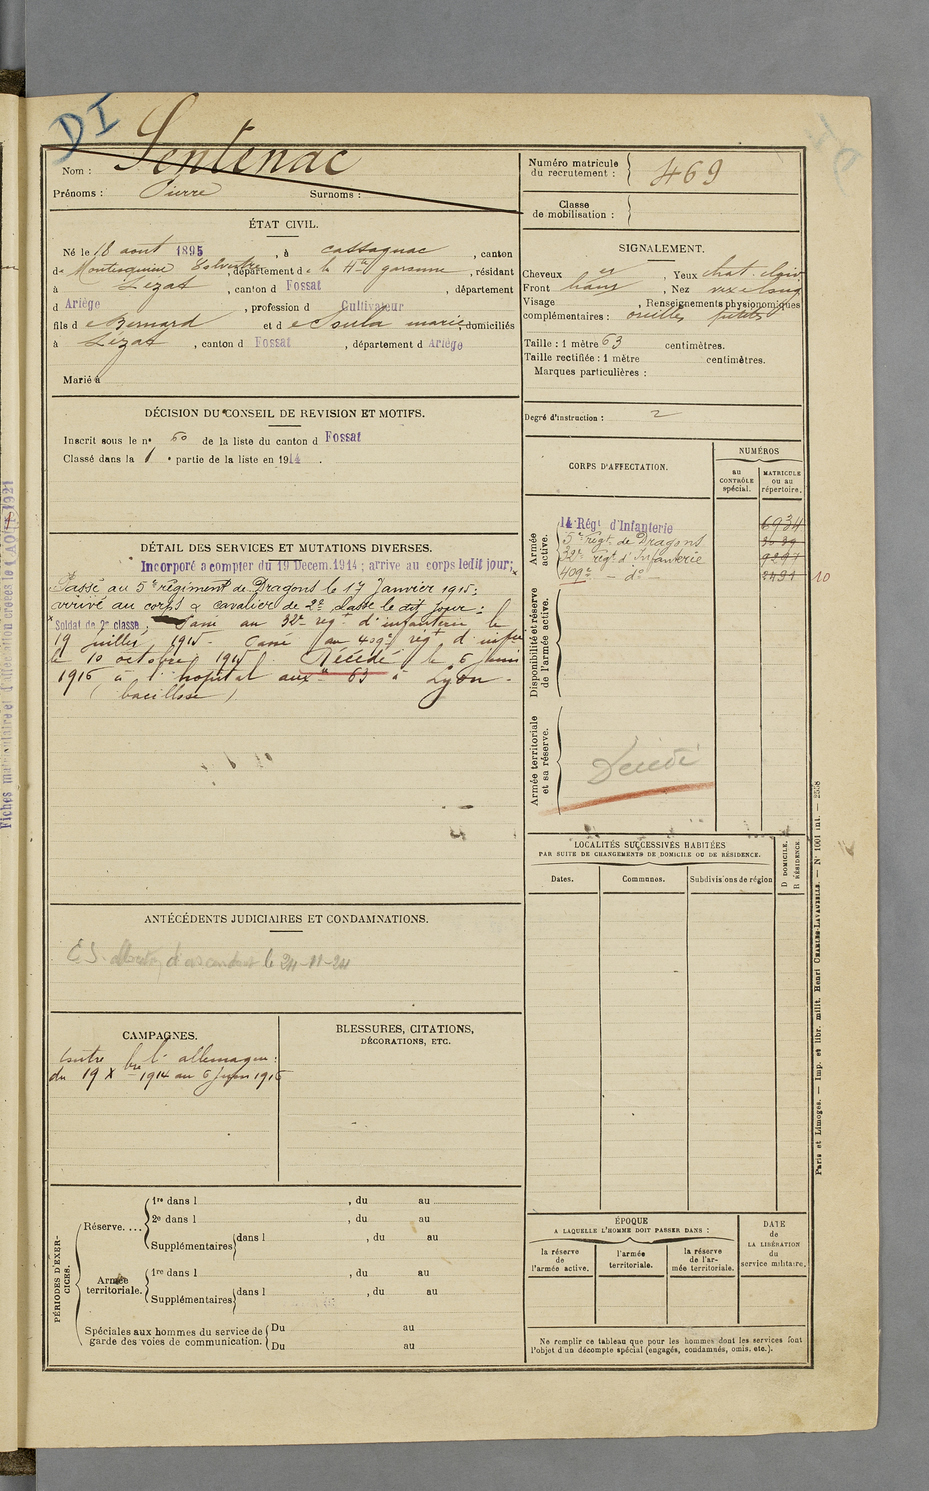 DI
Nom : Sentenac
Prénoms : Pierre Surnoms :
ÉTAT CIVIL.
Né le 18 aout 1895, à Cassagnac, canton
de Montesquieu Volvestre, département de la Hte garonne, résidant
à Lézat, canton d Fossat, département
d Ariège, profession d Cultivateur
fils de Bernard et de Soula marie, domiciliés
à Lézat, canton d Fossat, département d Ariège
Marié à
DÉCISION DU CONSEIL DE REVISION ET MOTIFS.
Inscrit sous le n° 60 de la liste du canton d Fossat
Classé dans la 1e partie de la liste en 1914.
DÉTAIL DES SERVICES ET MUTATIONS DIVERSES.
Incorporé a compter du 19 Decem. 1914 ; arrive au corps ledit jour; x
Passé au 5e régiment de Dragons le 17 Janvier 1915;
arrivé au corps & cavalier de 2e classe le dit jour :
x Soldat de 2e classe; Passé au 32e régt d'infanterie le
19 juillet 1915. Passé au 409e régt d'infie
le 10 octobre 1915 Décédé le 6 juin
1916 à l'hopital aux 63 à Lyon.
(bacillose)
ANTÉCÉDENTS JUDICIAIRES ET CONDAMNATIONS.
le 24-11-24
CAMPAGNES.
Contre l'allemagne :
du 19 Xbre 1914 au 6 Juin 1916
BLESSURES, CITATIONS,
DÉCORATIONS, ETC.
PÉRIODES D'EXERCICES.
Réserve....
1re dans l , du au
2e dans l , du au
Supplémentaires dans l , du au
Armée territoriale.
1re dans l , du au
Supplémentaires dans l , du au
Spéciales aux hommes du service de garde des voies de communication.
Du au
Du au
Numéro matricule du recrutement : 469
Classe de mobilisation :
SIGNALEMENT.
Cheveux , Yeux chat. clair
Front , Nez
Visage , Renseignements physionomiques
complémentaires : oreilles petites
Taille : 1 mètre 63 centimètres.
Taille rectifiée : 1 mètre centimètres.
Marques particulières :
Degré d'instruction : 2
CORPS D'AFFECTATION.
NUMÉROS
au CONTRÔLE spécial.
MATRICULE ou au répertoire.
Armée active.
14 Régt d'Infanterie 6934
5e régt de Dragons
32e régt d'Infanterie 9291
409e - do - 2491 10
Disponibilité et réserve de l'armée active.
Armée territoriale et sa réserve.
Décédé
LOCALITÉS SUCCESSIVES HABITÉES
PAR SUITE DE CHANGEMENTS DE DOMICILE OU DE RÉSIDENCE.
Dates.
Communes.
Subdivisions de région
D DOMICILE.
R RÉSIDENCE
ÉPOQUE
A LAQUELLE L'HOMME DOIT PASSER DANS :
la réserve de l'armée active.
l'armée territoriale.
la réserve de l'armée territoriale.
DATE
de
LA LIBÉRATION
du
service militaire.
Ne remplir ce tableau que pour les hommes dont les services font
l'objet d'un décompte spécial (engagés, condamnés, omis, etc.).
Paris et Limoges. — Imp. et libr. milit. Henri CHARLES-LAVAUZELLE. — N° 1001 int. — 2558